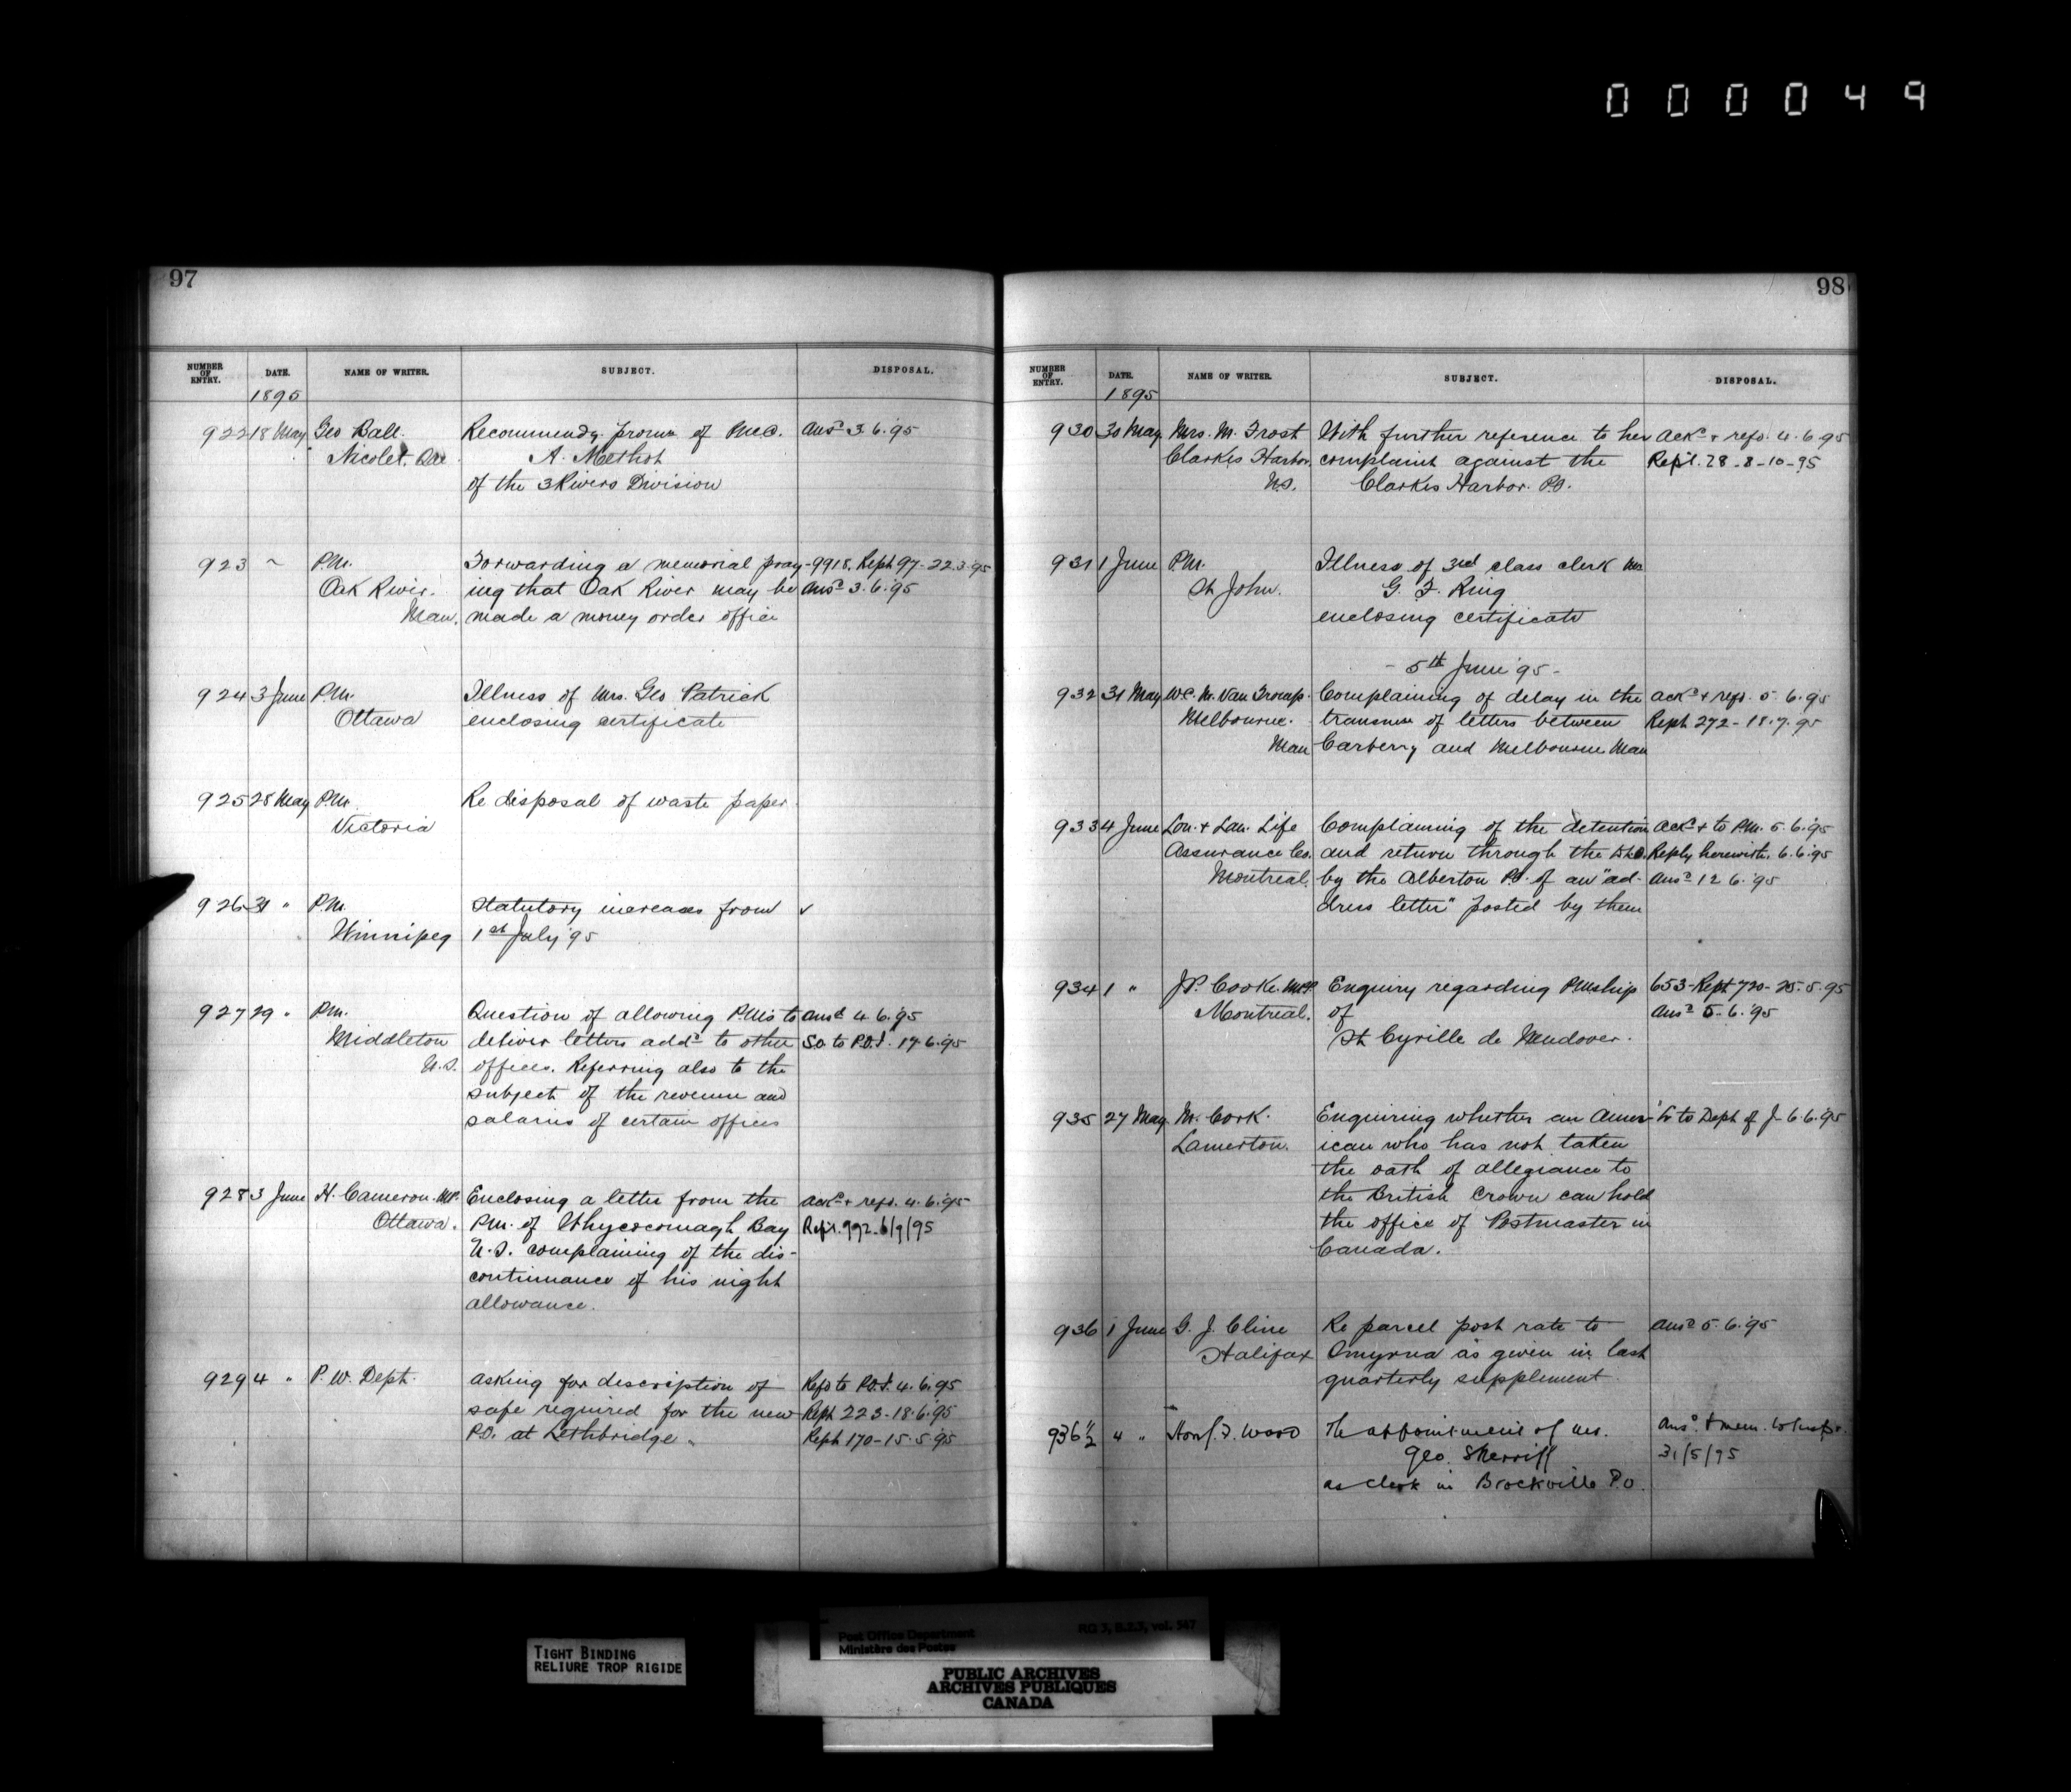 000049
97
NUMBER OF ENTRY. DATE. NAME OF WRITER. SUBJECT. DISPOSAL.
1895
922 18 May Geo Ball. Recommendg. promn of P.M.C. Ansd 3.6.95
Nicolet, Que A. Methot
of the 3 Rivers Division
923 ~ P.M. Forwarding a memorial pray- 9918. Rept 97-22.3.95
Oak River. ing that Oak River may be Ansd 3.6.'95
Man. made a money order office
924 3 June P.M. Illness of Mrs. Geo Patrick
Ottawa enclosing certificate
925 28 May P.M. Re disposal of waste paper.
Victoria
926 31 " P.M. Statutory increases from ✓
Winnipeg 1st July '95
927 29 " P.M. Question of allowing P.M's to ansd 4.6.'95
Middleton deliver letters addd to other S.O. to P.O.I. 17.6.'95
N.S. offices. Referring also to the
subject of the revenue and
salaries of certain offices
928 3 June H. Cameron. M.P. Enclosing a letter from the ackd + refd. 4.6.'95
Ottawa. P.M. of Whycocomagh Bay Rept. 992-6/9/95
N.S. complaining of the dis-
continuance of his night
allowance.
929 4 " P.W. Dept. asking for description of Refd to P.O.I. 4.6.'95
safe required for the new Rept 223-18.6.'95
P.O. at Lethbridge " Rept 170-15.5.'95
98
NUMBER OF ENTRY. DATE. NAME OF WRITER. SUBJECT. DISPOSAL.
1895
930 30 May Mrs. M. Frost With further reference to her ackd + refd. 4.6.95
Clarkes Harbor, complaint against the Rept. 28-8-10-95
N.S. Clarkes Harbor. P.O.
931 1 June P.M. Illness of 3rd class clerk Mr.
St John. G. F. Ring
enclosing certificate
- 5th June '95 -
932 31 May Wm. Complaining of delay in the ackd + refd. 5.6.95
Melbourne. transmn of letters between Rept 272-18.7.95
Man Carberry and Melbourne Man
933 4 June Lon. + Lan. Life Complaining of the detention ackd + to P.M. 5.6.'95
Assurance Co. and return through the D.L.O. Reply herewith. 6.6.'95
Montreal. by the Alberton P.O. of an "ad- ansd 12.6.'95
dress letter" posted by them
934 1 " J.P. Cooke. M.P.P. Enquiry regarding P.Mship 653-Rept 720-25.5.95
Montreal. of ansd 5.6.'95
St Cyrille de Wendover.
935 27 May M. Cork. Enquiring whether an Amer- Lr to Dept of J- 6.6.'95
Lamerton. ican who has not taken
the oath of allegiance to
the British Crown can hold
the office of Postmaster in
Canada.
936 1 June G. J. Cline Re parcel post rate to ansd 5.6.'95
Halifax Smyrna as given in last
quarterly supplement
936½ 4 " Hon J. F. Wood The appointment of Mr. Ansd. + mem. to Inspr.
Geo. Sherriff 31/5/95
as clerk in Brockville P.O.
TIGHT BINDING
RELIURE TROP RIGIDE
Post Office Department RG 3, B.2.3, vol. 547
Ministère des Postes
PUBLIC ARCHIVES
ARCHIVES PUBLIQUES
CANADA